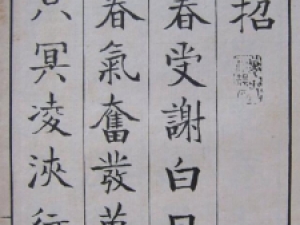 招
春受謝白日
春氣奮發萬
冥凌浹行